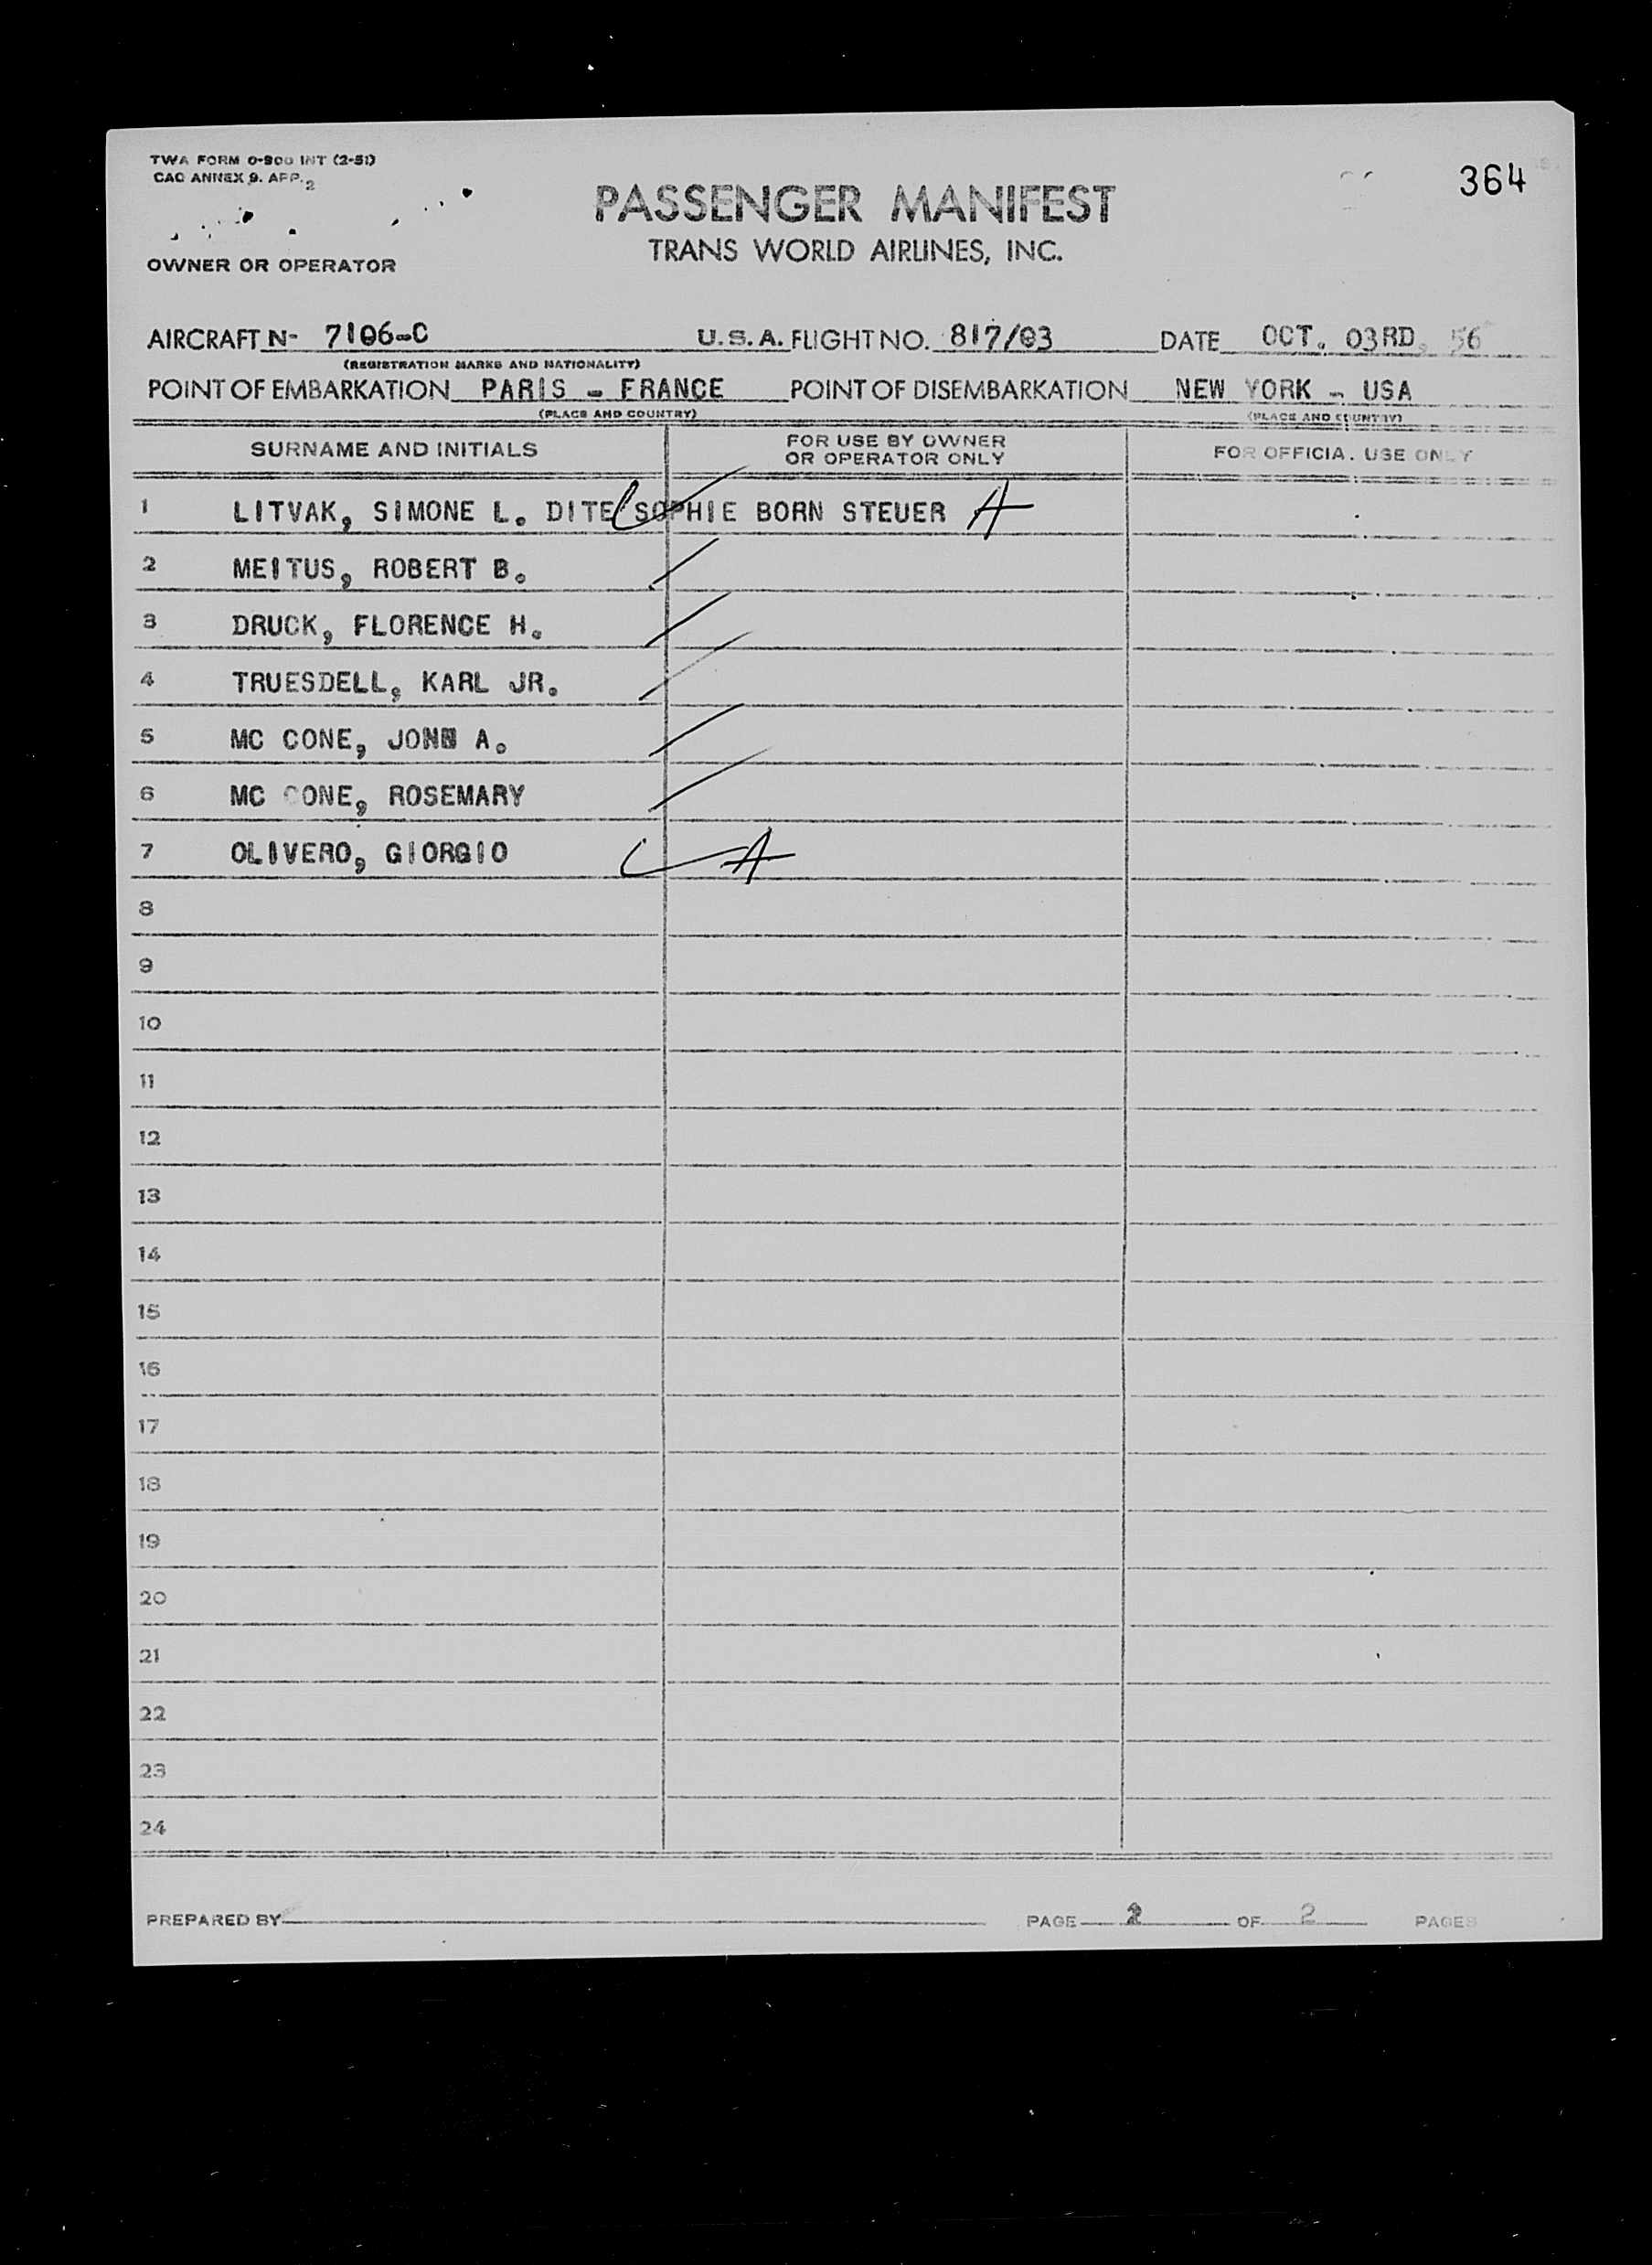 TWA FORM 0-900 INT (2-51)
CAO ANNEX 9. APP. 2
364
PASSENGER MANIFEST
TRANS WORLD AIRLINES, INC.
OWNER OR OPERATOR
AIRCRAFT N- 7106-C U.S.A. FLIGHT NO. 817/03 DATE OCT. 03RD, 56
(REGISTRATION MARKS AND NATIONALITY)
POINT OF EMBARKATION PARIS - FRANCE POINT OF DISEMBARKATION NEW YORK - USA
(PLACE AND COUNTRY) (PLACE AND COUNTRY)
SURNAME AND INITIALS FOR USE BY OWNER OR OPERATOR ONLY FOR OFFICIA. USE ONLY
1 LITVAK, SIMONE L. DITE SOPHIE BORN STEUER A
2 MEITUS, ROBERT B.
3 DRUCK, FLORENCE H.
4 TRUESDELL, KARL JR.
5 MC CONE, JONN A.
6 MC CONE, ROSEMARY
7 OLIVERO, GIORGIO A
8
9
10
11
12
13
14
15
16
17
18
19
20
21
22
23
24
PREPARED BY PAGE 2 OF 2 PAGES